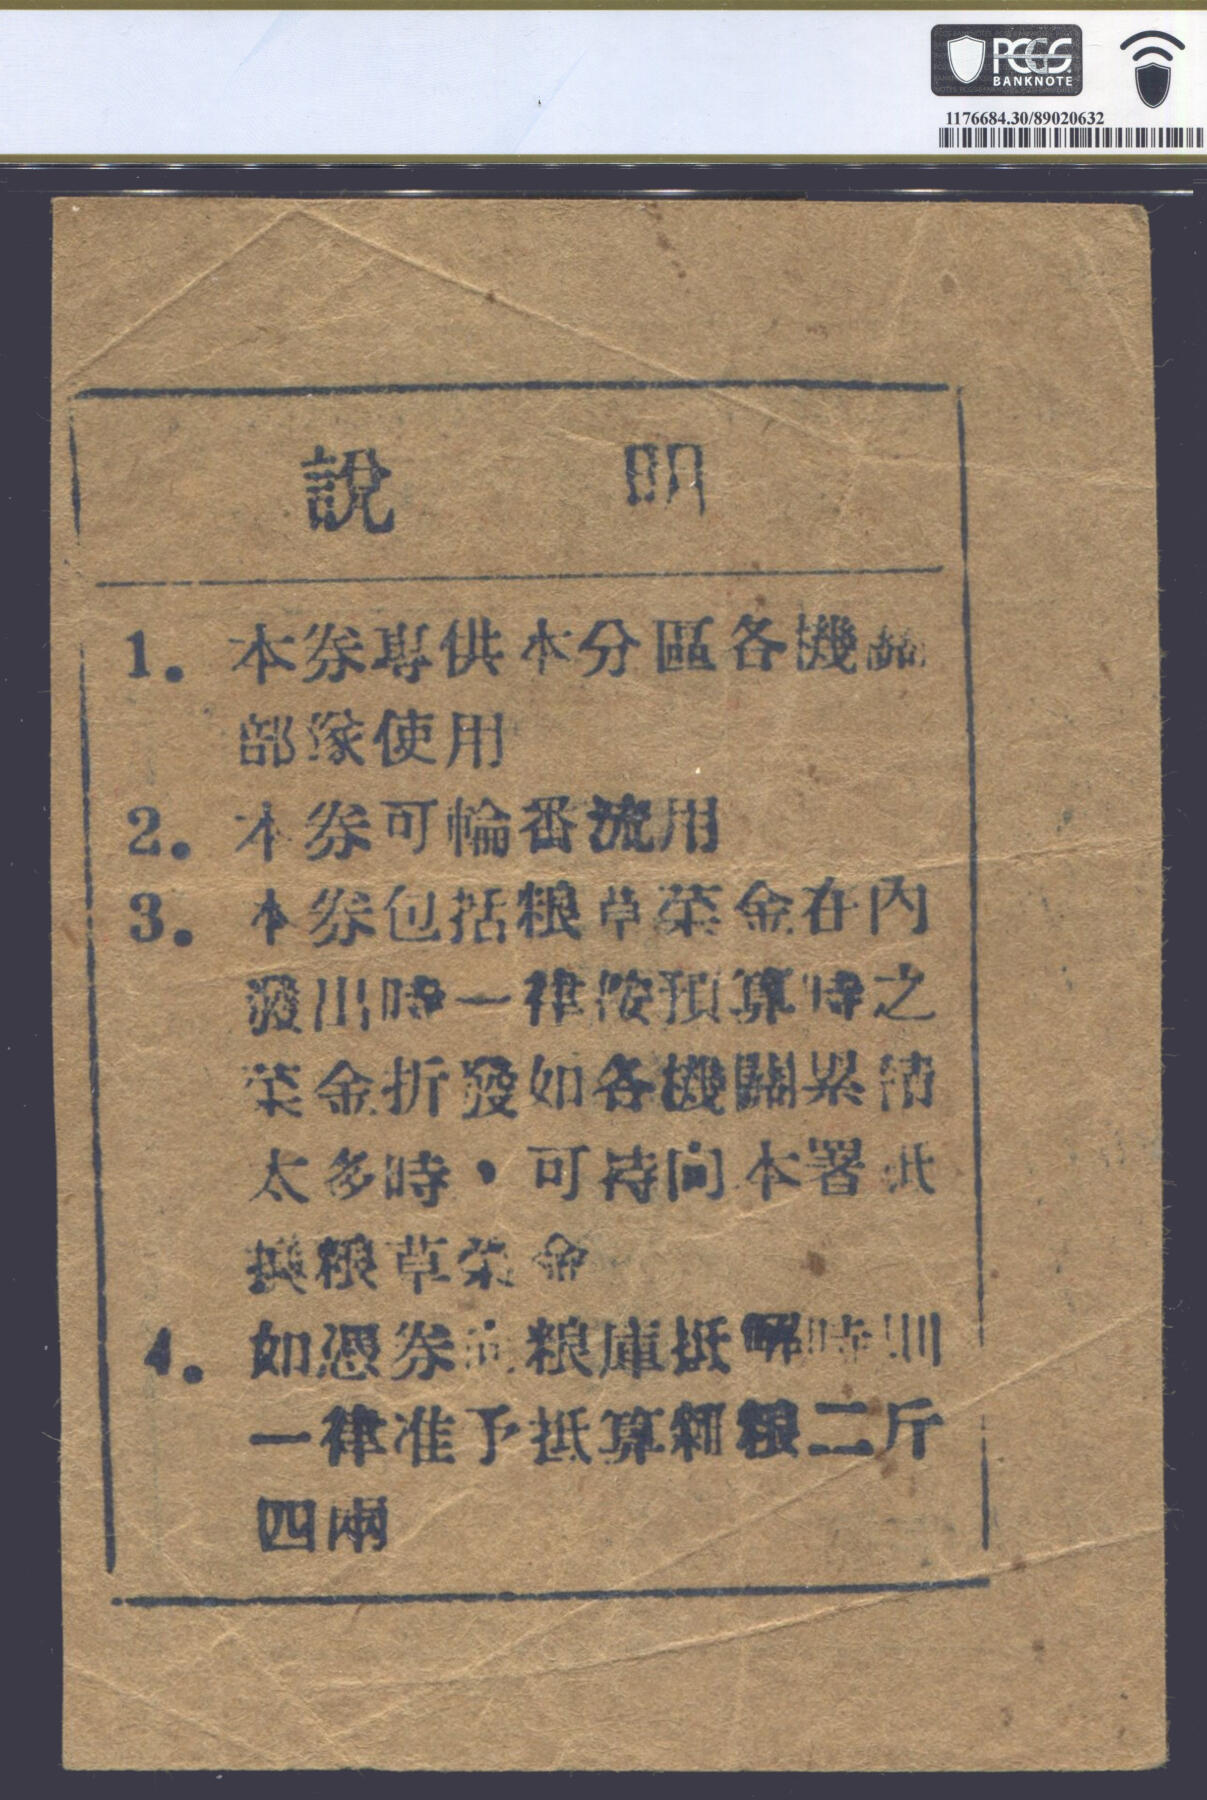 PCGS
BANKNOTE
1176684.30/89020632
說 明
1. 本券專供本分區各機關
部隊使用
2. 本券可輪番流用
3. 本券包括粮草菜金在內
發出時一律按預算時之
菜金折發如各機關累積
太多時，可持向本署
換粮草菜金
4. 如憑券向粮庫抵解時則
一律准予抵算細粮二斤
四兩